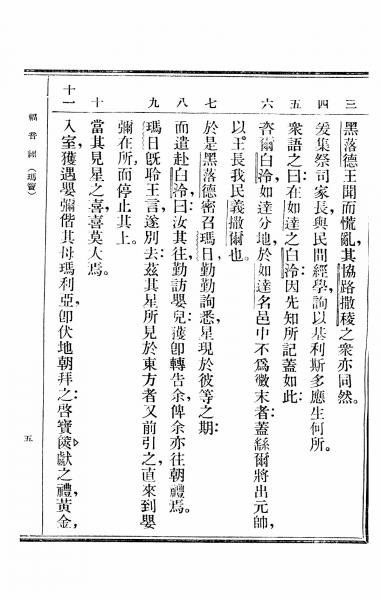 三 黑落德王聞而慌亂,其協路撒稜之衆亦同然。
四 爰集祭司家長,與民間經學,詢以基利斯多應生何所。
五 衆語之曰:在如達之白泠,因先知所記蓋如此:
六 呰爾白泠,如達分地,於如達名邑中不爲微末者:蓋繇爾將出元帥,
以王長我民義撒爾也。
七 於是黑落德密召瑪日,勤勤詢悉星現於彼等之期:
八 而遣赴白泠曰:汝其往勤訪嬰兒,獲卽轉告余,俾余亦往朝禮焉。
九 瑪日旣聆王言,遂別去:茲其星所見於東方者,又前引之,直來到嬰
彌在所,而停止其上。
十 當其見星之喜,喜莫大焉。
十一 入室,獲遇嬰彌偕其母瑪利亞,卽伏地朝拜之:啓寶篋,獻之禮,黃金,
福音經(瑪竇)
五